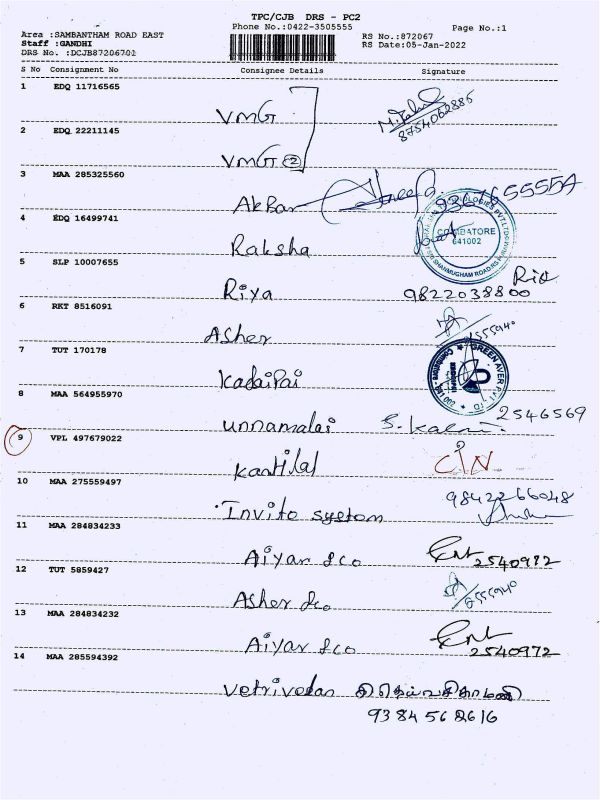 TPC/CJB DRS - PC2
Phone No.:0422-3505555
Page No.:1
Area :SAMBANTHAM ROAD EAST
Staff :GANDHI
DRS No. :DCJB87206701
RS No.:872067
RS Date:05-Jan-2022
S No Consignment No Consignee Details Signature
1 EDQ 11716565
VMG
8754062885
2 EDQ 22211145
VMG (2)
3 MAA 285325560
Akbar
4 EDQ 16499741
COIMBATORE
641002
Raksha
5 SLP 10007655
Riya 9822038800
6 RKT 8516091
Asher
7 TUT 170178
GREENAVER PVT LTD
Kadaipai
8 MAA 564955970
2546569
Unnamalai
9 VPL 497679022
Kantilal
10 MAA 275559497
9842266048
Invito system
11 MAA 284834233
Aiyar &co 2540972
12 TUT 5859427
Asher &co
13 MAA 284834232
Aiyar &co 2540972
14 MAA 285594392
Vetrivelan
9384562616